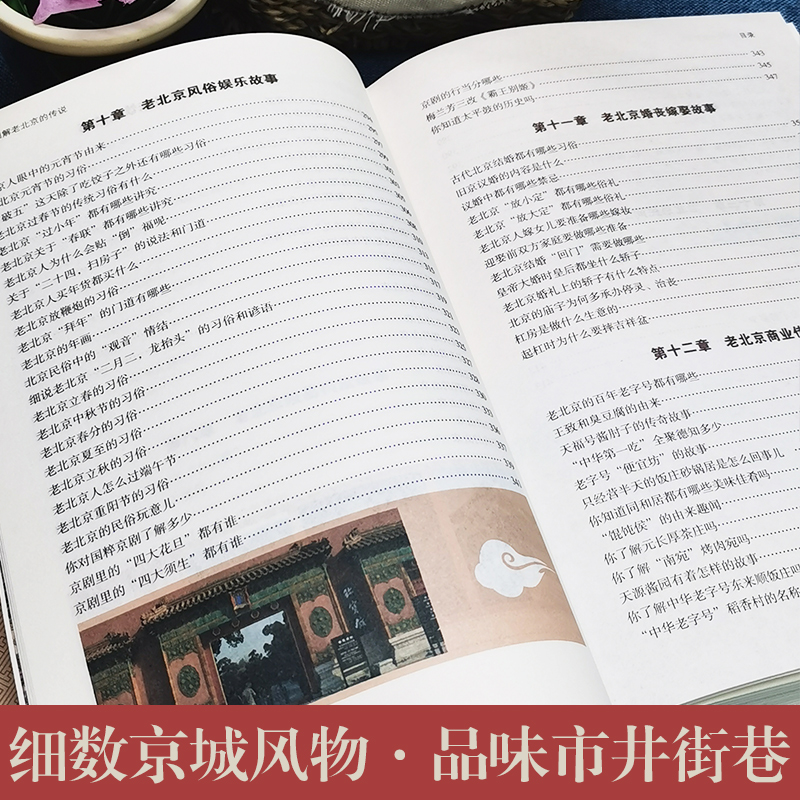 图解老北京的传说
第十章 老北京风俗娱乐故事
京人眼中的元宵节由来
北京元宵节的习俗
破五”这天除了吃饺子之外还有哪些习俗
老北京过春节的传统习俗有什么
老北京“过小年”都有哪些讲究
老北京关于“春联”都有哪些讲究
老北京人为什么会贴“倒”福呢
关于“二十四，扫房子”的说法和门道
老北京人买年货都买什么
老北京放鞭炮的习俗
老北京“拜年”的门道有哪些
老北京的年画
北京民俗中的“观音”情结
细说老北京“二月二，龙抬头”的习俗和谚语
老北京立春的习俗
老北京中秋节的习俗
老北京春分的习俗
老北京夏至的习俗
老北京立秋的习俗
老北京人怎么过端午节
老北京重阳节的习俗
老北京的民俗玩意儿
你对国粹京剧了解多少
京剧里的“四大花旦”都有谁
京剧里的“四大须生”都有谁
目录
京剧的行当分哪些 343
梅兰芳三改《霸王别姬》 345
你知道太平鼓的历史吗 347
第十一章 老北京婚丧嫁娶故事
古代北京结婚都有哪些习俗
旧京议婚的内容是什么
议婚中都有哪些禁忌
老北京“放小定”都有哪些俗礼
老北京“放大定”都有哪些俗礼
老北京人嫁女儿要准备哪些嫁妆
迎娶前双方家庭要做哪些准备
老北京结婚“回门”需要做哪些
皇帝大婚时皇后都坐什么轿子
老北京婚礼上的轿子有什么特点
北京的庙宇为何多承办停灵、治丧
杠房是做什么生意的
起杠时为什么要摔吉祥盆
第十二章 老北京商业
老北京的百年老字号都有哪些
王致和臭豆腐的由来
天福号酱肘子的传奇故事
“中华第一吃”全聚德知多少
老字号“便宜坊”的故事
只经营半天的饭庄砂锅居是怎么回事儿
你知道同和居都有哪些美味佳肴吗
“馄饨侯”的由来趣闻
你了解元长厚茶庄吗
你了解“南宛”烤肉宛吗
天源酱园有着怎样的故事
你了解中华老字号东来顺饭庄吗
“中华老字号”稻香村的名称
细数京城风物·品味市井街巷